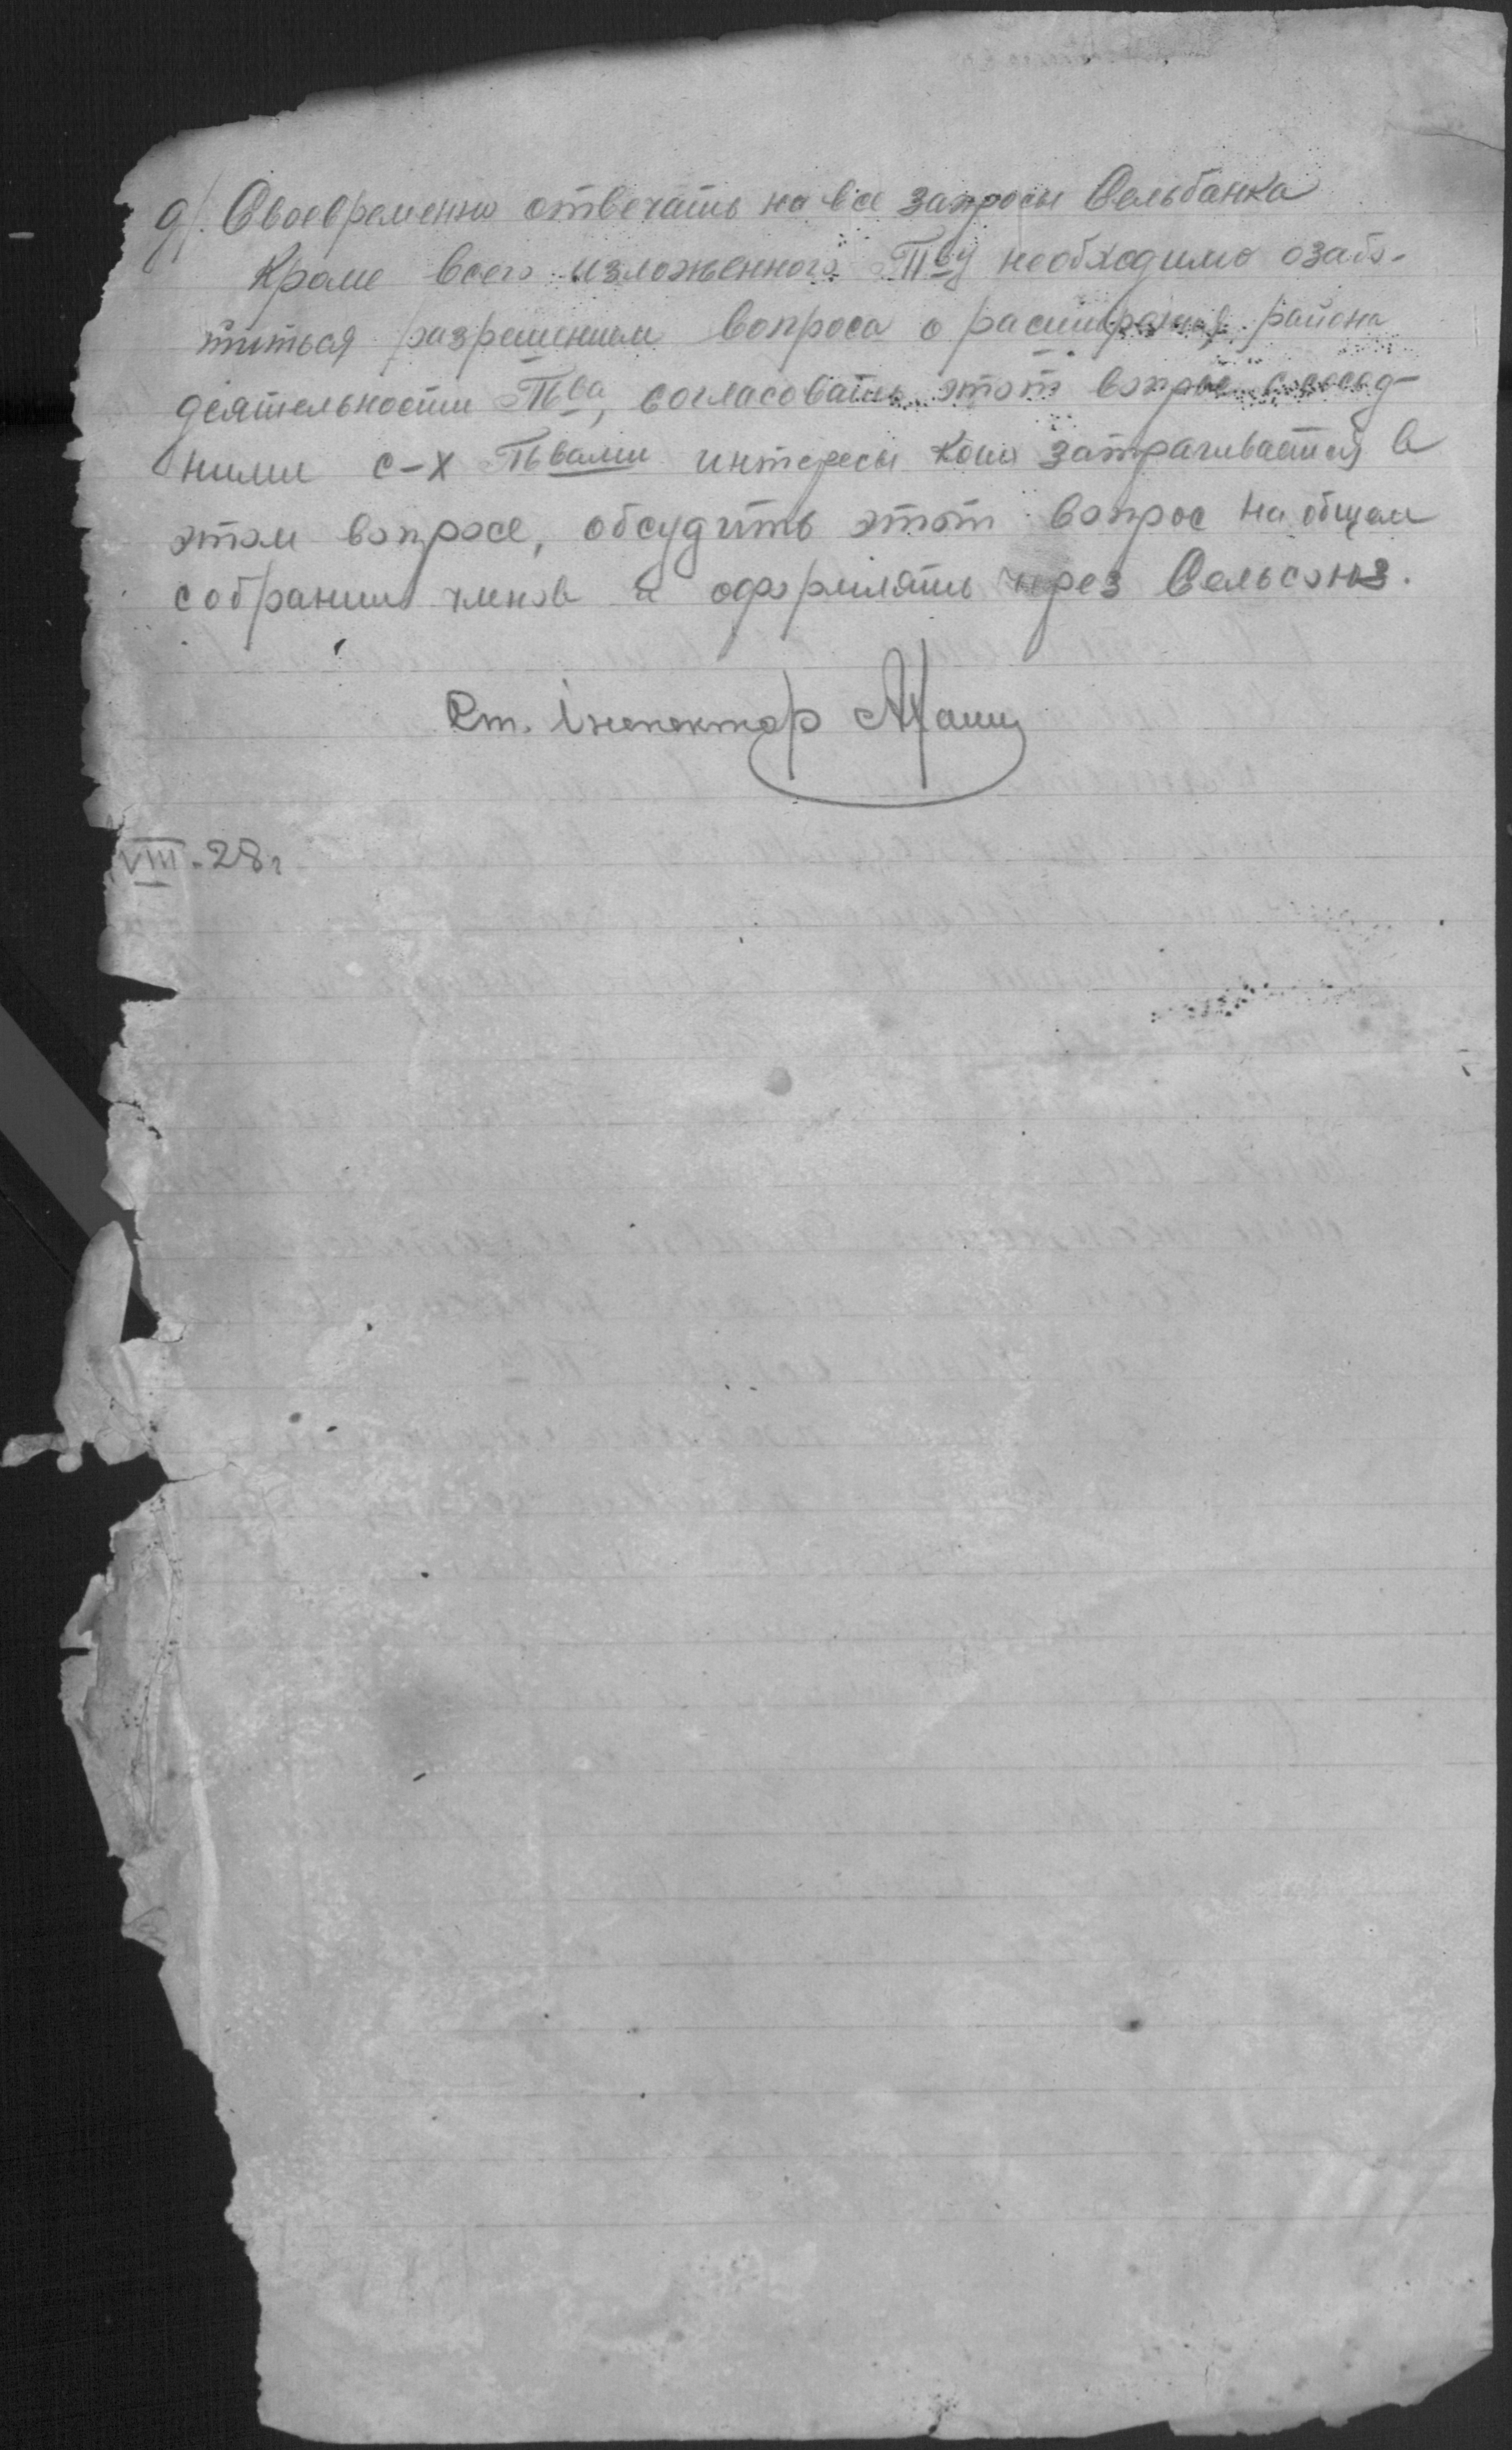 д/. Своевременно отвечать на все запросы Сельбанка
Кроме всего изложенного Т-ву необходимо озабо-
титься разрешением вопроса о расширения района
деятельности Т-ва, согласовать этот вопрос с сосед-
ними с-х Т-вами интересы коих затрагивается в
этом вопросе, обсудить этот вопрос на общем
собрании членов и оформлять через Сельсоюз.
Ст. Інспектор
VIII-28 г